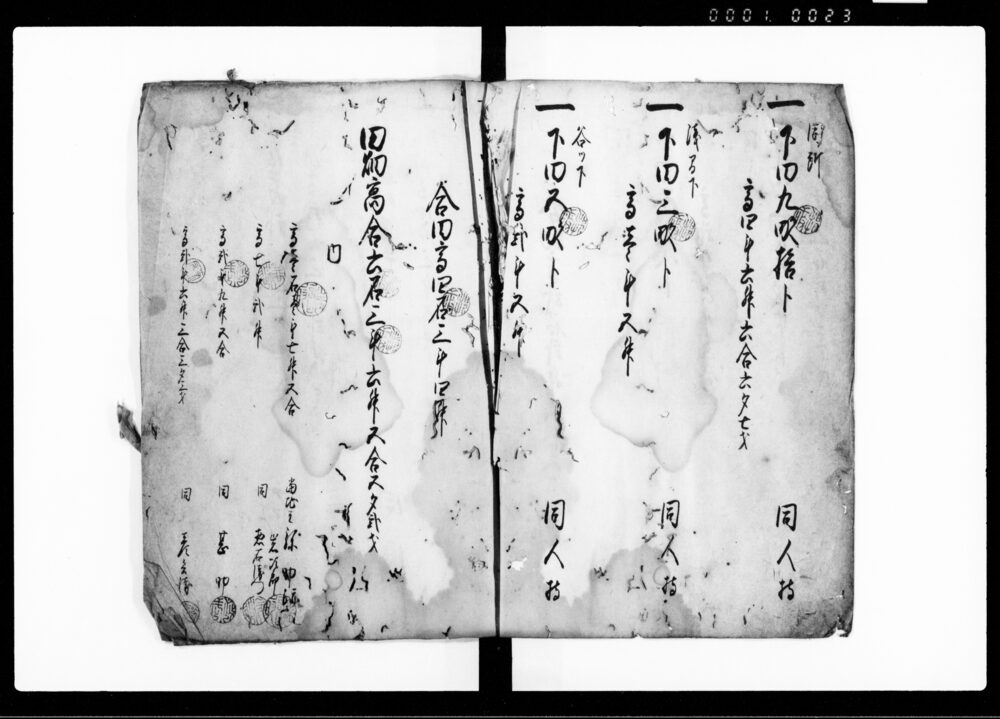 0001 0023
同所
一下田九畝拾卜
高四斗六升六合六夕七才
同人持
一下田三畝卜
高壱斗五升
同人持
谷ノ下
一下田五畝卜
高弐斗五升
同人持
合田高四石三斗四升
田畑高合六石三斗六升五合五夕弐才
内
高壱石壱斗七升五合
高七斗弐升
同
高弐斗九升五合
同 甚助
高弐斗六升三合三夕三才
同